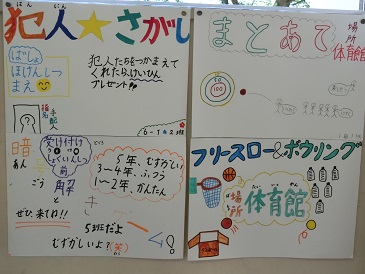 はんにん
犯人★さがし
ばしょ
ほけんしつ
まえ
犯人たちをつかまえて
くれたら、けいひん
プレゼント
指名
手配犯
?
6-1
まとあて
場所
体育館
100
受け付け
しょくいんしつ
前
暗
あん
ごう
解
と
き
5年、むずかしい
3~4年、ふつう
1~2年、かんたん
ぜひ、来てね!!
5班だよ
むずかしいよ?(笑)
フリースロー&ボウリング
場所
体育館